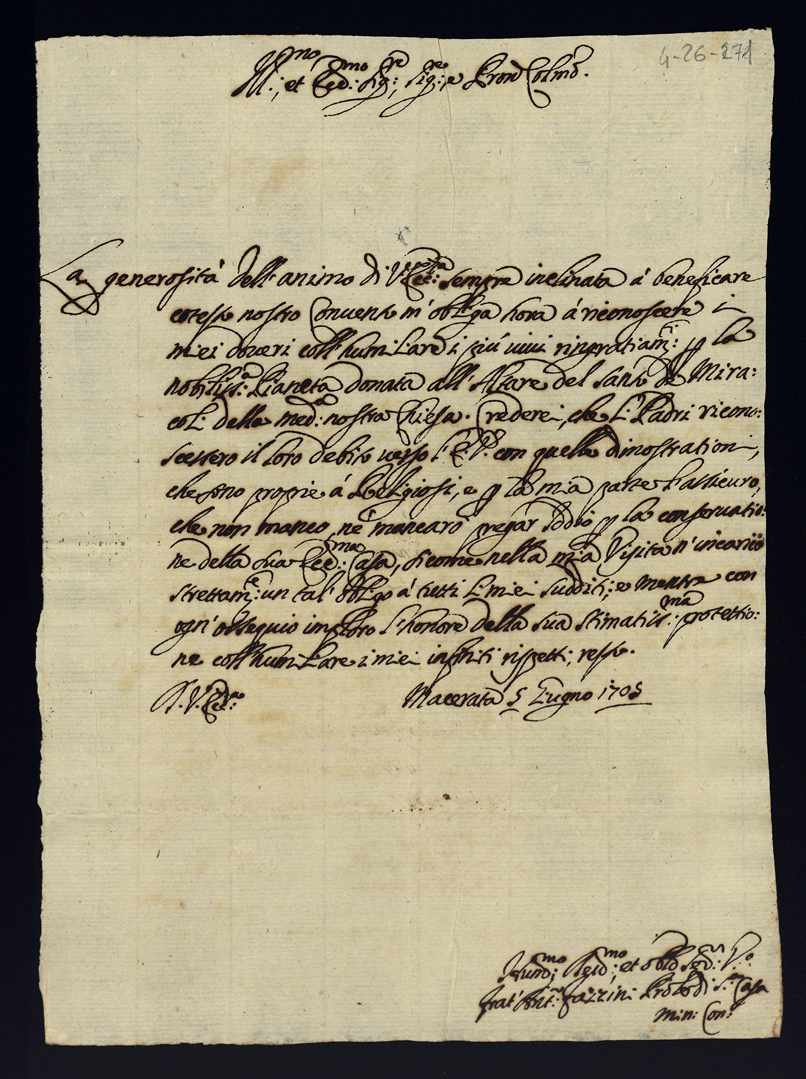 4-26-271
Ill.mo et Ecc.mo Sig.re Sig.re e Pron Colmo.
La generosità dell'animo di V. Ecc.za sempre inclinata à beneficare
cotesto nostro Convento m'obliga hora à riconoscere i
miei doveri coll'humiliare i più vivi ringratiam.ti p la
nobiliss.a Pianeta donata all'Altare del Santo de Mira:
coli della med.a nostra Chiesa. Crederei, che li Padri ricono:
scessero il loro debito verso l'E. V. con quelle dimostrationi,
che sono proprie à Religiosi, e p la mia parte l'assicuro,
che non manco, nè mancarò pregar Iddio p la conservatio:
ne della sua Ecc.ma Casa, sicome nella mia Visita n'incaricò
strettam.e un tal obligo à tutti i miei sudditi; e mentre con
ogn'ossequio imploro l'honore della sua stimatiss.ma protettio:
ne coll'humiliare i miei infiniti rispetti, resto.
D. V. Ecc.za Macerata 5 Giugno 1705
Hum.mo Dev.mo, et obl.mo Ser.re V.o
frat' Ant.o Fazzini di S.a Casa
Min: Con: